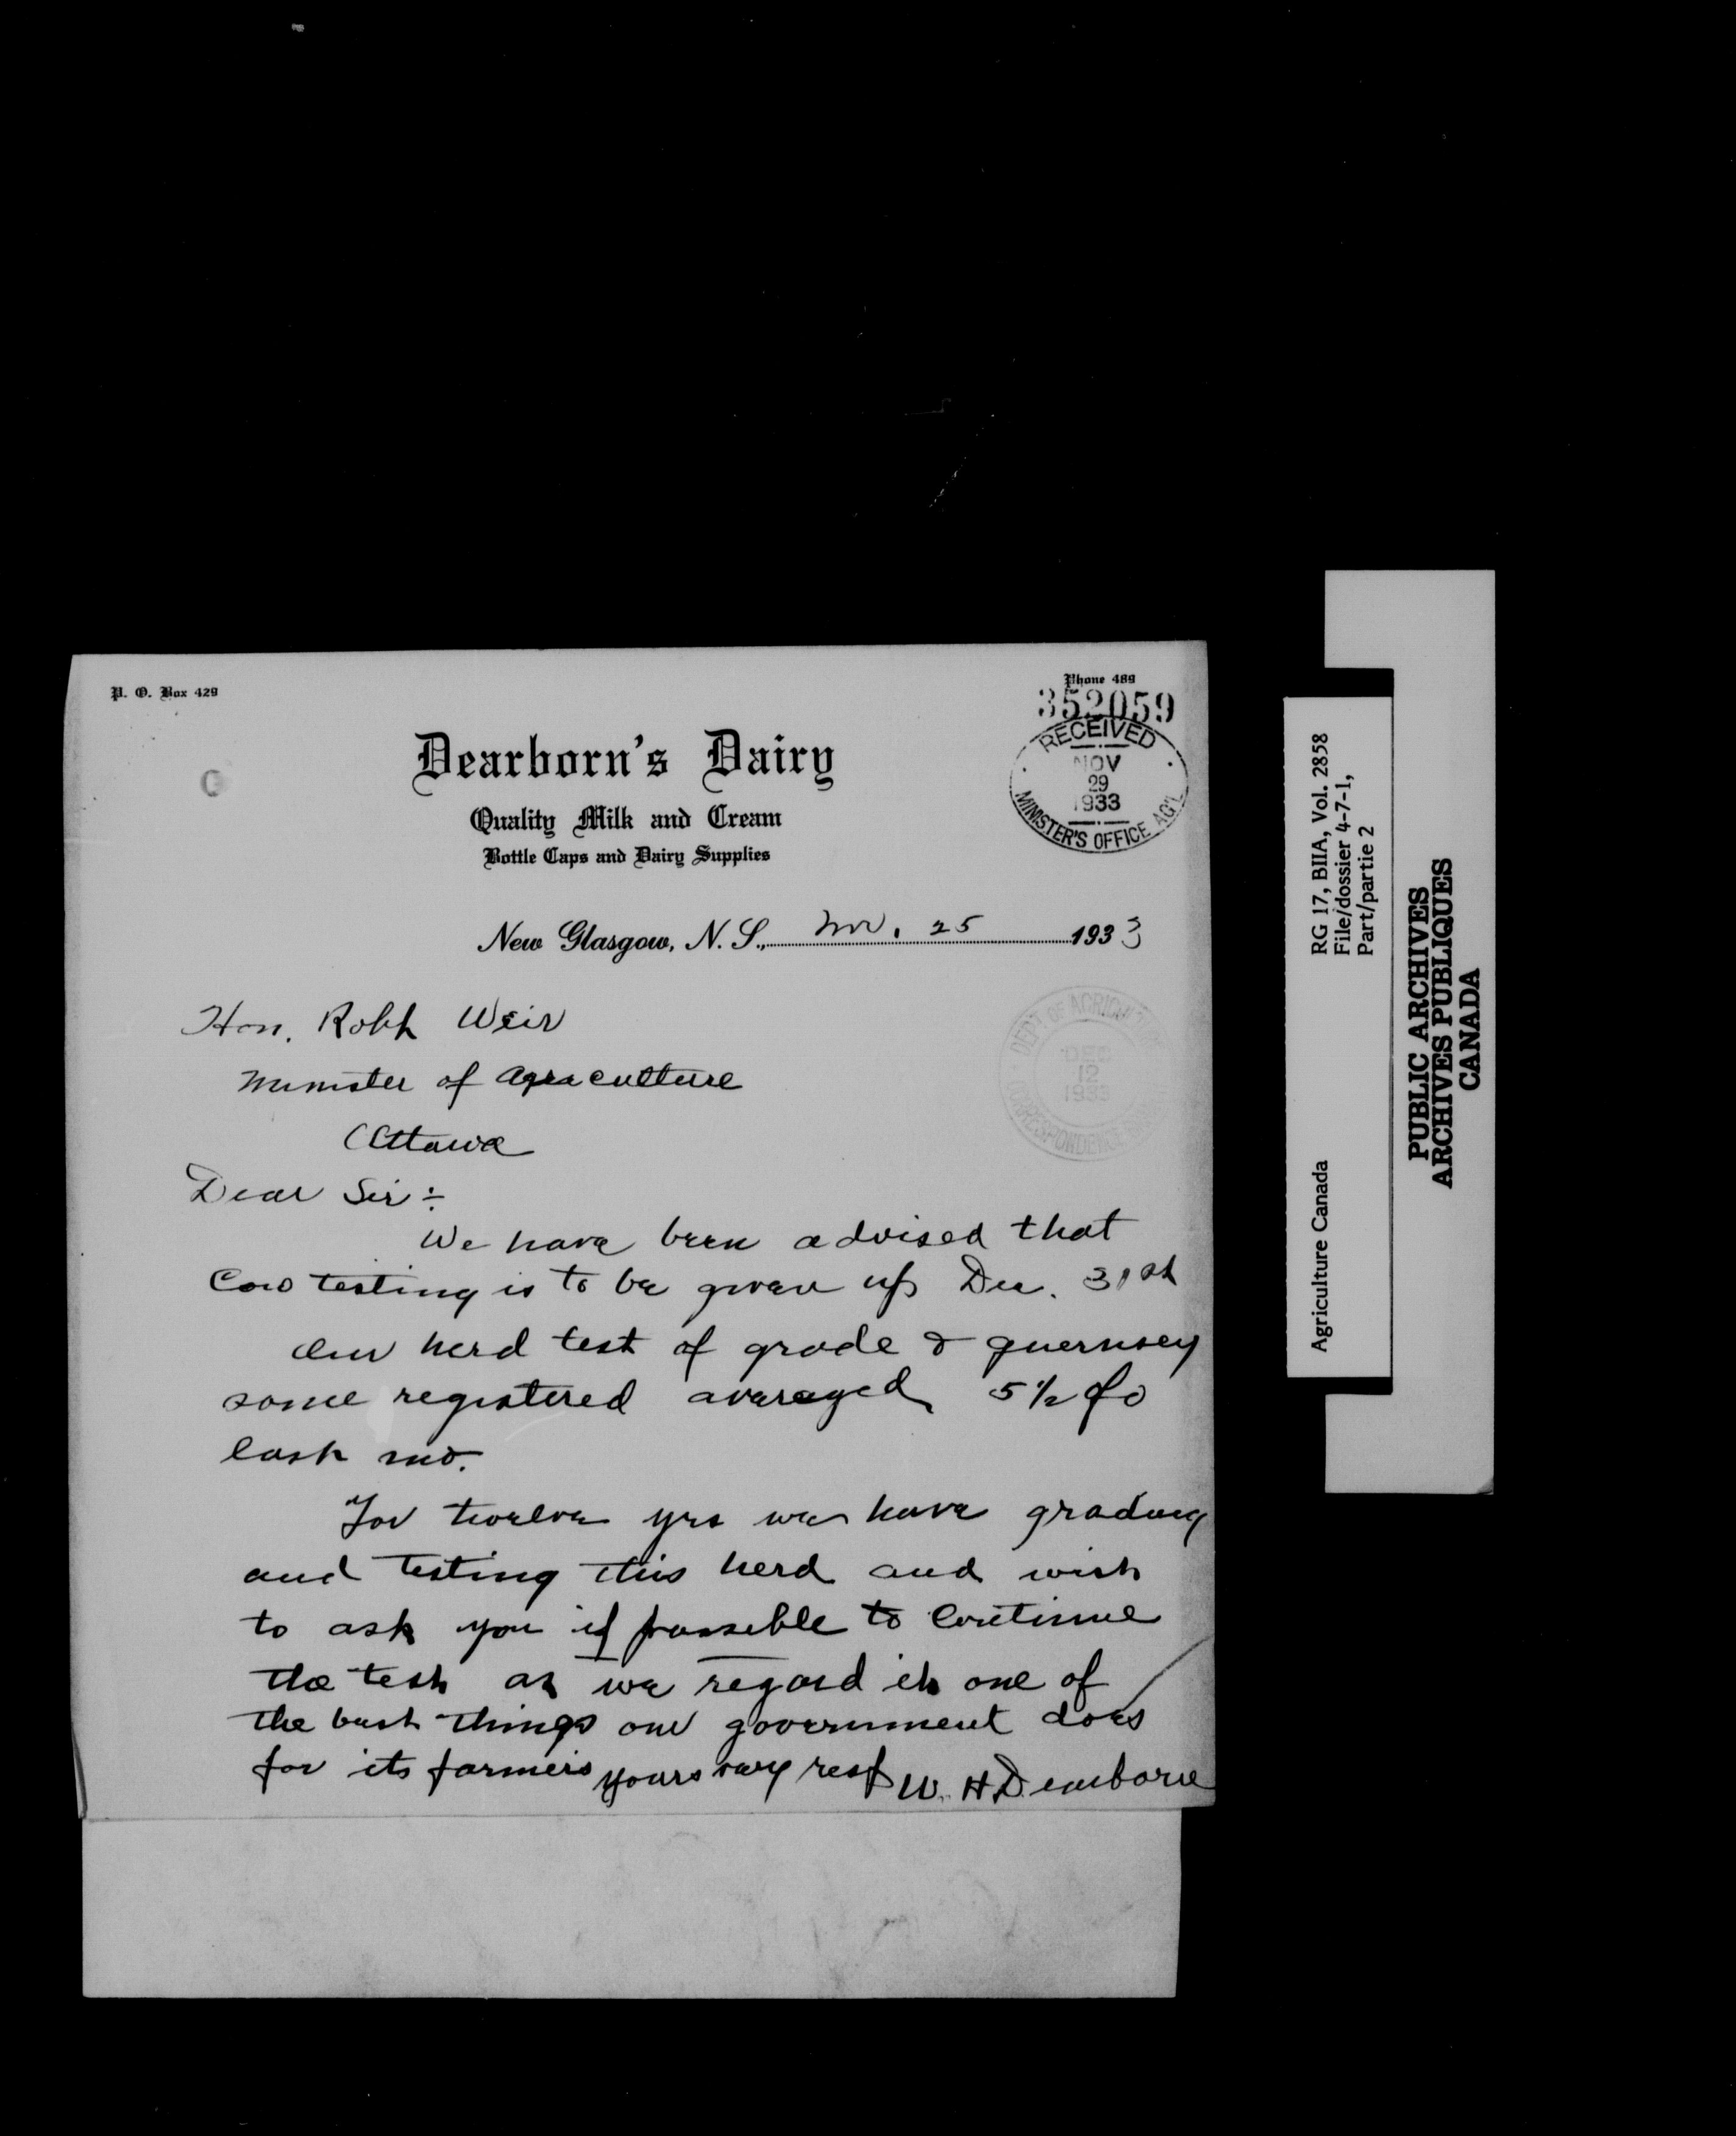 P. O. Box 429
Phone 489
352059
RECEIVED
NOV
29
1933
MINISTER'S OFFICE AG'L
Dearborn's Dairy
Quality Milk and Cream
Bottle Caps and Dairy Supplies
New Glasgow, N. S., Nov. 25 1933
DEP'T OF AGRICULTURE
DEC
12
1933
CORRESPONDENCE
Hon. Robt Weir
Minister of Agraculture
Ottawa
Dear Sir :-
We have been advised that
Cow testing is to be given up Dec. 31st
Our herd test of grade & guernsey
some registered averaged 5 1/2 %
last mo.
For twelve yrs we have grading
and testing this herd and wish
to ask you if possible to continue
the test as we regard it one of
the best things our government does
for its farmers yours very resp W. H. Dearborn
Agriculture Canada
RG 17, BIIA, Vol. 2858
File/dossier 4-7-1,
Part/partie 2
PUBLIC ARCHIVES
ARCHIVES PUBLIQUES
CANADA